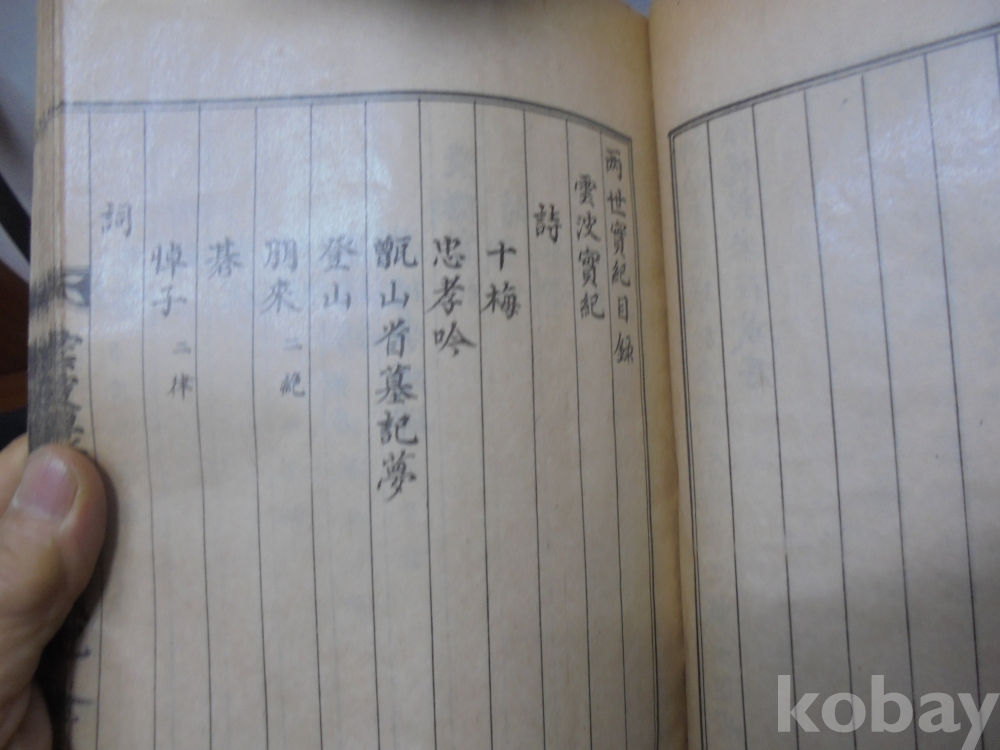 兩世實紀目錄
雲波實紀
詩
十梅
忠孝吟
甑山省墓記夢
登山
朋來 二絶
碁
悼子 二律
詞
kobay